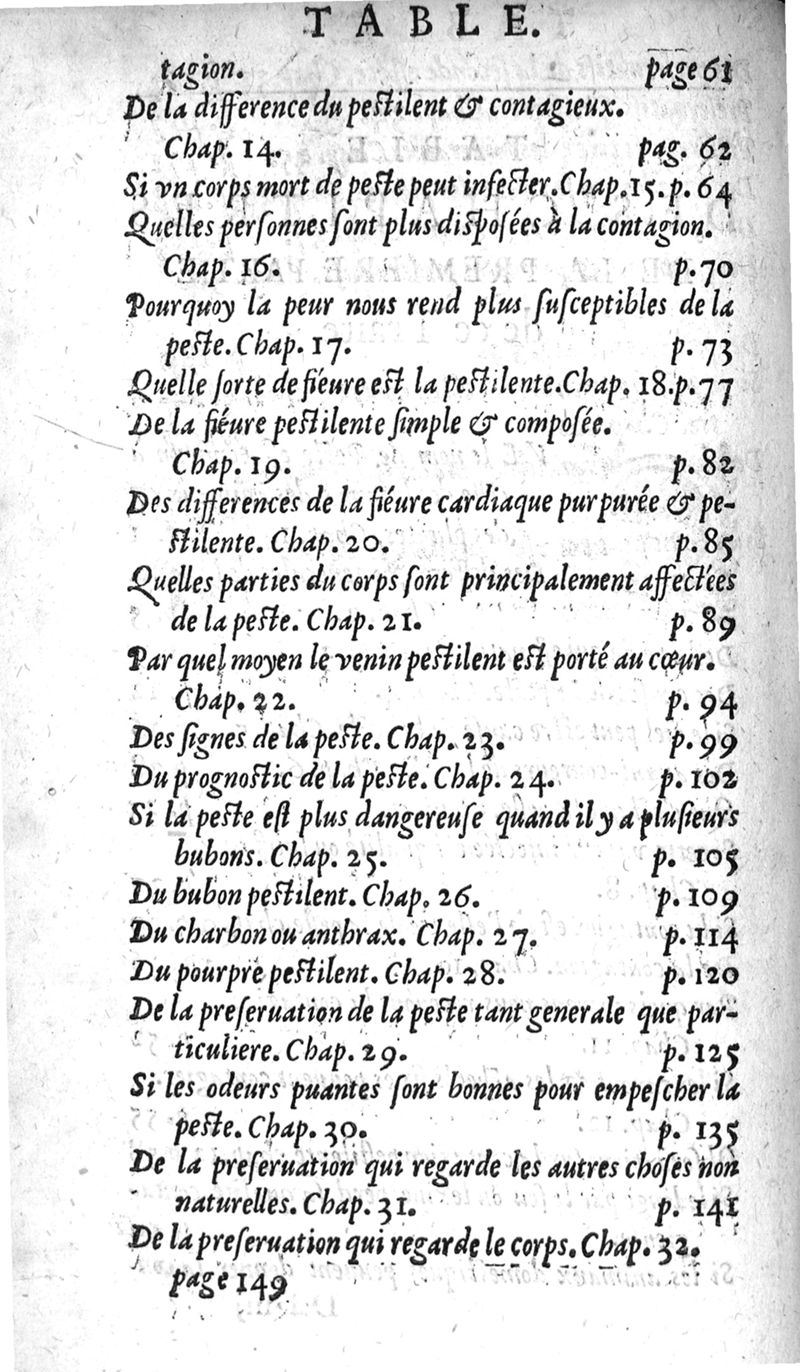 TABLE.
tagion. page 61
De la difference du pestilent & contagieux.
Chap. 14. pag. 62
Si vn corps mort de peste peut infecter. Chap. 15. p. 64
Quelles perſonnes ſont plus diſpoſées à la contagion.
Chap. 16. p. 70
Pourquoy la peur nous rend plus ſuſceptibles de la
peste. Chap. 17. p. 73
Quelle ſorte de fiéure est la pestilente. Chap. 18. p. 77
De la fiéure pestilente ſimple & compoſée.
Chap. 19. p. 82
Des differences de la fiéure cardiaque purpurée & pe-
stilente. Chap. 20. p. 85
Quelles parties du corps ſont principalement affectées
de la peste. Chap. 21. p. 89
Par quel moyen le venin pestilent est porté au cœur.
Chap. 22. p. 94
Des ſignes de la peste. Chap. 23. p. 99
Du prognostic de la peste. Chap. 24. p. 102
Si la peste eſt plus dangereuſe quand il y a pluſieurs
bubons. Chap. 25. p. 105
Du bubon pestilent. Chap. 26. p. 109
Du charbon ou anthrax. Chap. 27. p. 114
Du pourpre pestilent. Chap. 28. p. 120
De la preſeruation de la peste tant generale que par-
ticuliere. Chap. 29. p. 125
Si les odeurs puantes ſont bonnes pour empeſcher la
peste. Chap. 30. p. 135
De la preſeruation qui regarde les autres choſes non
naturelles. Chap. 31. p. 141
De la preſeruation qui regarde le corps. Chap. 32.
page 149